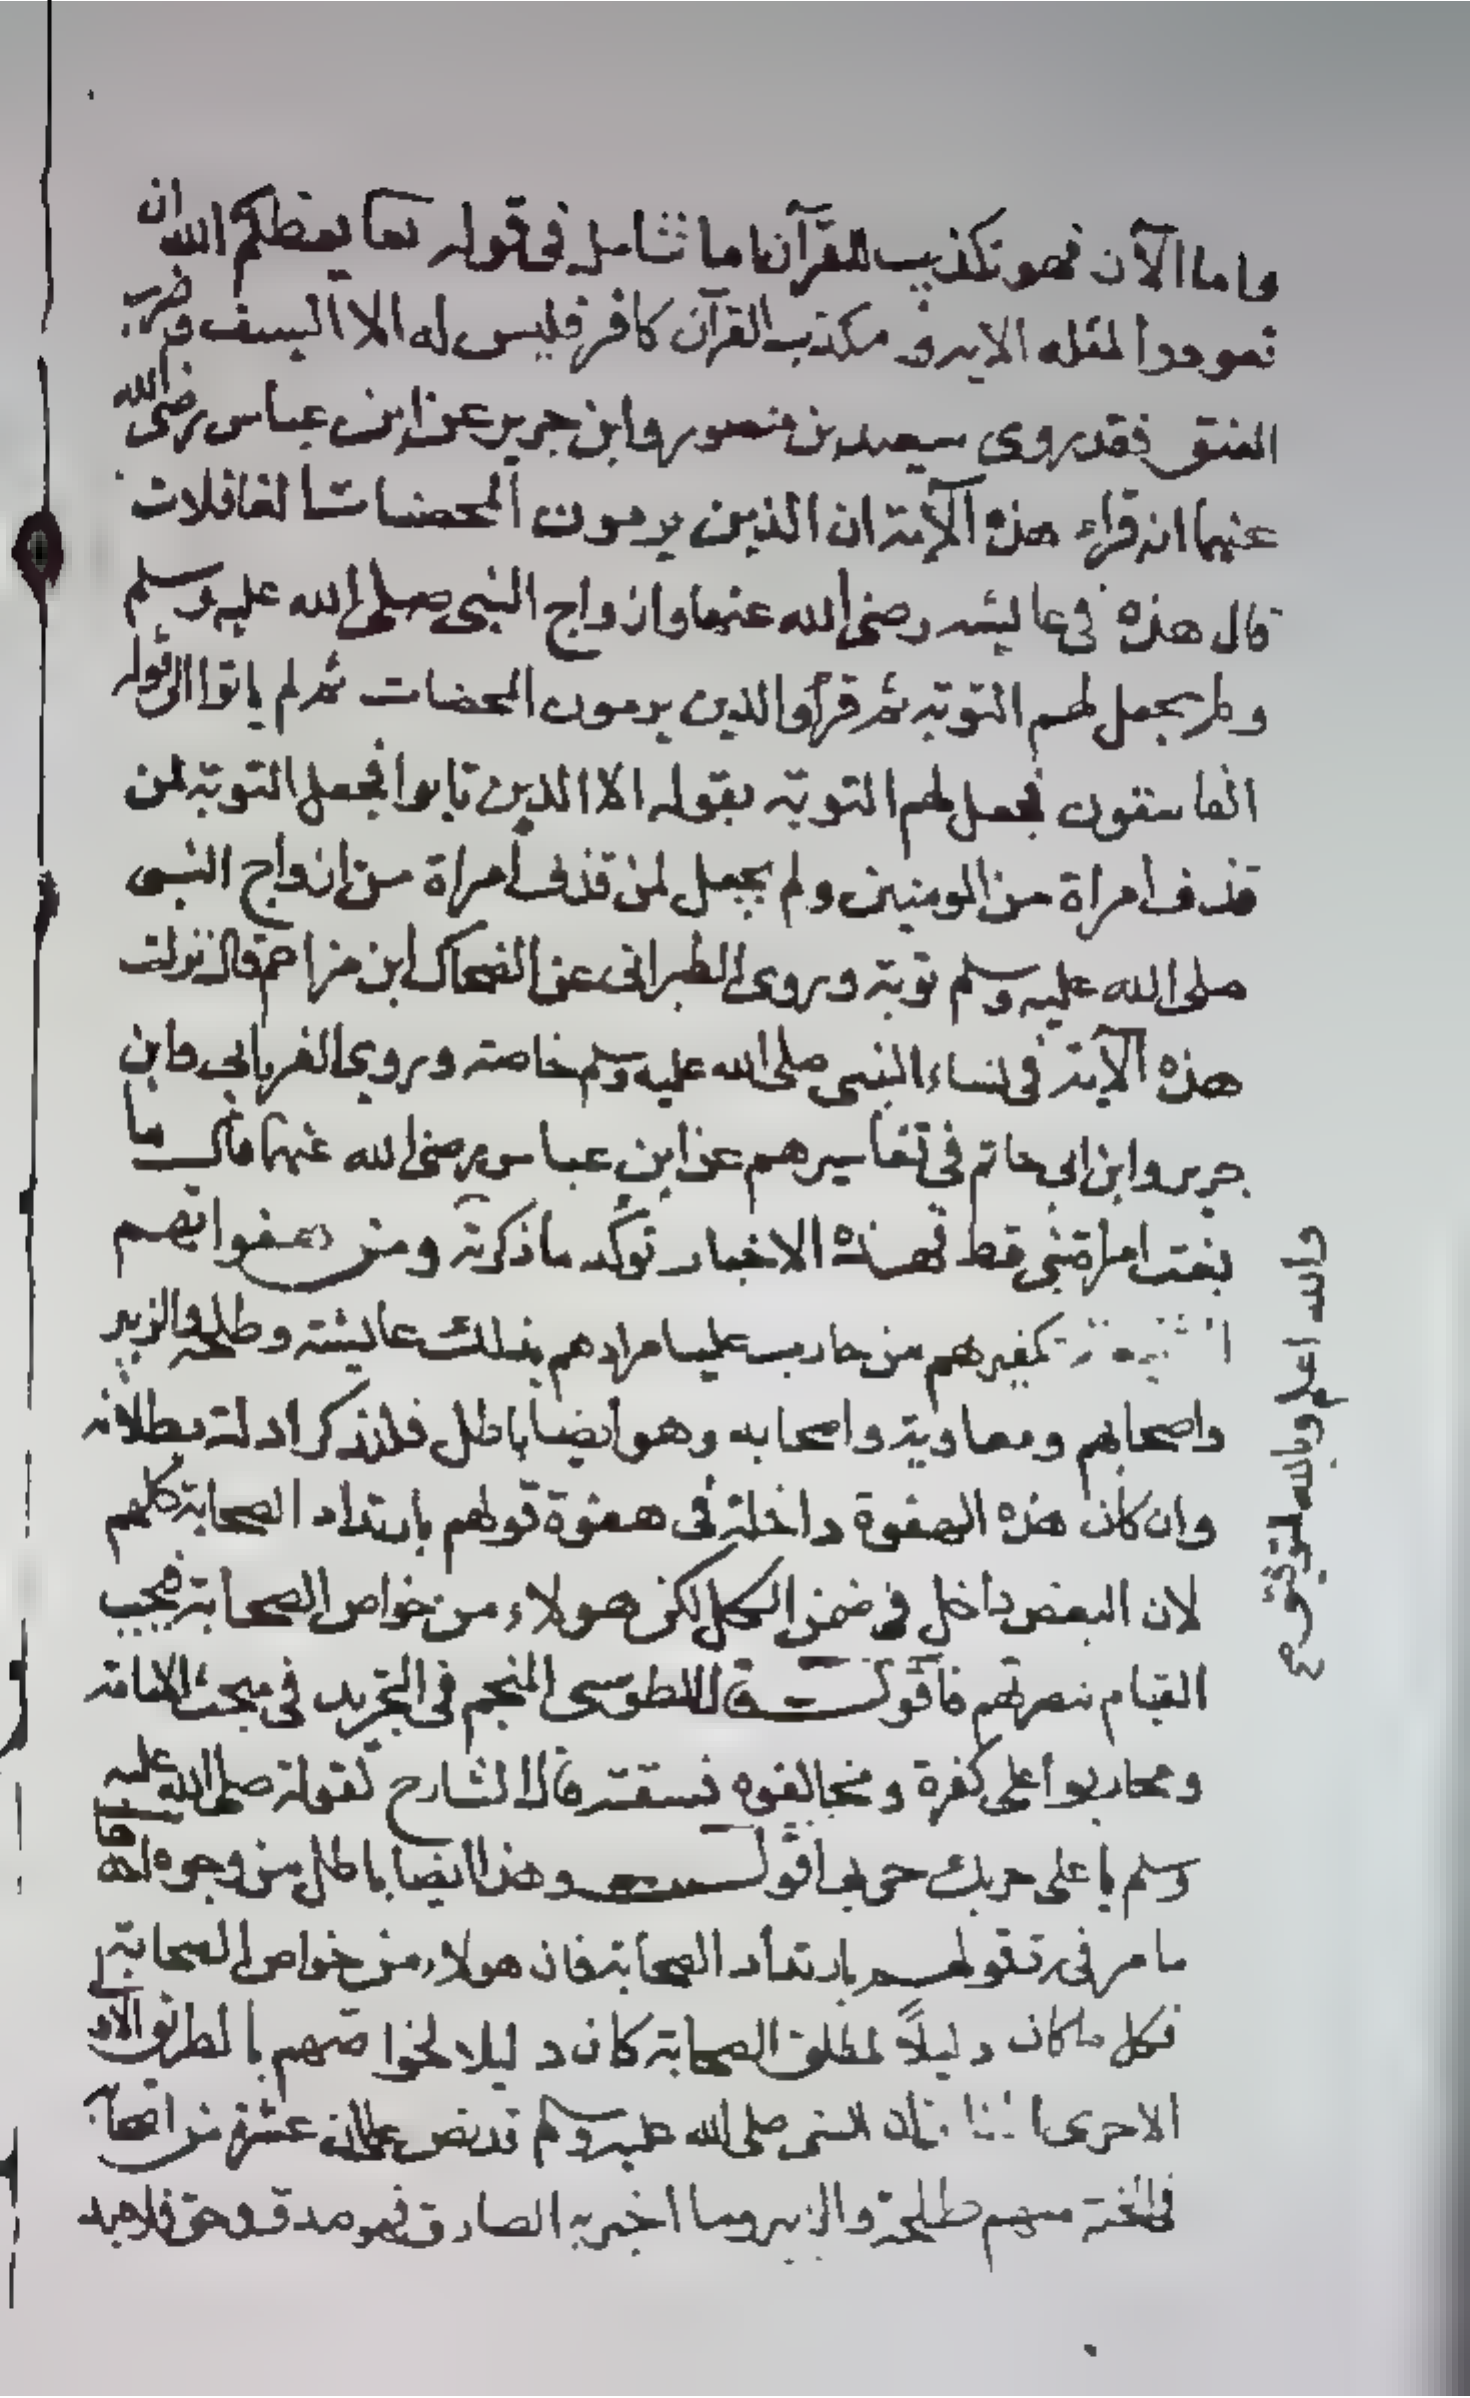 واما الآن فهو تكذيب للقرآن اما تتامل في قوله تعا يعظكم الله ان
تعودوا لمثله الايه و مكذب القرآن كافر فليس له الا السيف وضرب
العنق فقد روى سعيد بن منصور وابن جرير عن ابن عباس رضى الله
عنهما انه قراء هذه الآية ان الذين يرمون المحصنات الغافلات
قال هذه في عايشه رضى الله عنها وازواج النبي صلى الله عليه وسلم
ولم يجعل لهم التوبة ثم قرأ والذين يرمون المحصنات ثم لم ياتوا الى قوله
الفاسقون فجعل لهم التوبة بقوله الا الذين تابوا فجعل التوبة لمن
قذف امراة من المومنين ولم يجعل لمن قذف امراة من ازواج النبي
صلى الله عليه وسلم توبة وروى الطبراني عن الضحاك ابن مزاحم قال نزلت
هذه الآية في نساء النبي صلى الله عليه وسلم خاصة وروى الفريابي وابن
جرير وابن ابي حاتم في تفاسيرهم عن ابن عباس رضى الله عنهما قال ما
بغت امراة نبي قط فهذه الاخبار توكد ما ذكرته ومن هفواتهم
تكفيرهم من حارب عليا مرادهم بذلك عايشة وطلحة والزبير
واصحابهم ومعاوية واصحابه وهو ايضا باطل فلنذكر ادلة بطلانه
وان كان هذه الهفوة داخلة في هفوة قولهم بارتداد الصحابة كلهم
لان البعض داخل في ضمن الكل لكن هولاء من خواص الصحابة فيجب
القيام بنصرتهم فاقول قال الطوسى المنجم في التجريد في مبحث الامامة
ومحاربوا على كفرة ومخالفوه فسقة قال الشارح لقوله صلى الله عليه
وسلم يا على حربك حربي اقول وهذا ايضا باطل من وجوه
ما مر في رد قولهم بارتداد الصحابة فان هولاء من خواص الصحابة
فكل ما كان دليلاً لمطلق الصحابة كان دليلا لخواصهم بالطريق الاو
الاحرى ان النبي صلى الله عليه وسلم قد نص على ان عشرة من اصحابه
في الجنة منهم طلحة والزبير وما اخبر به الصادق فهو صدق وحق فلا
والله اعلم وبالله التوفيق